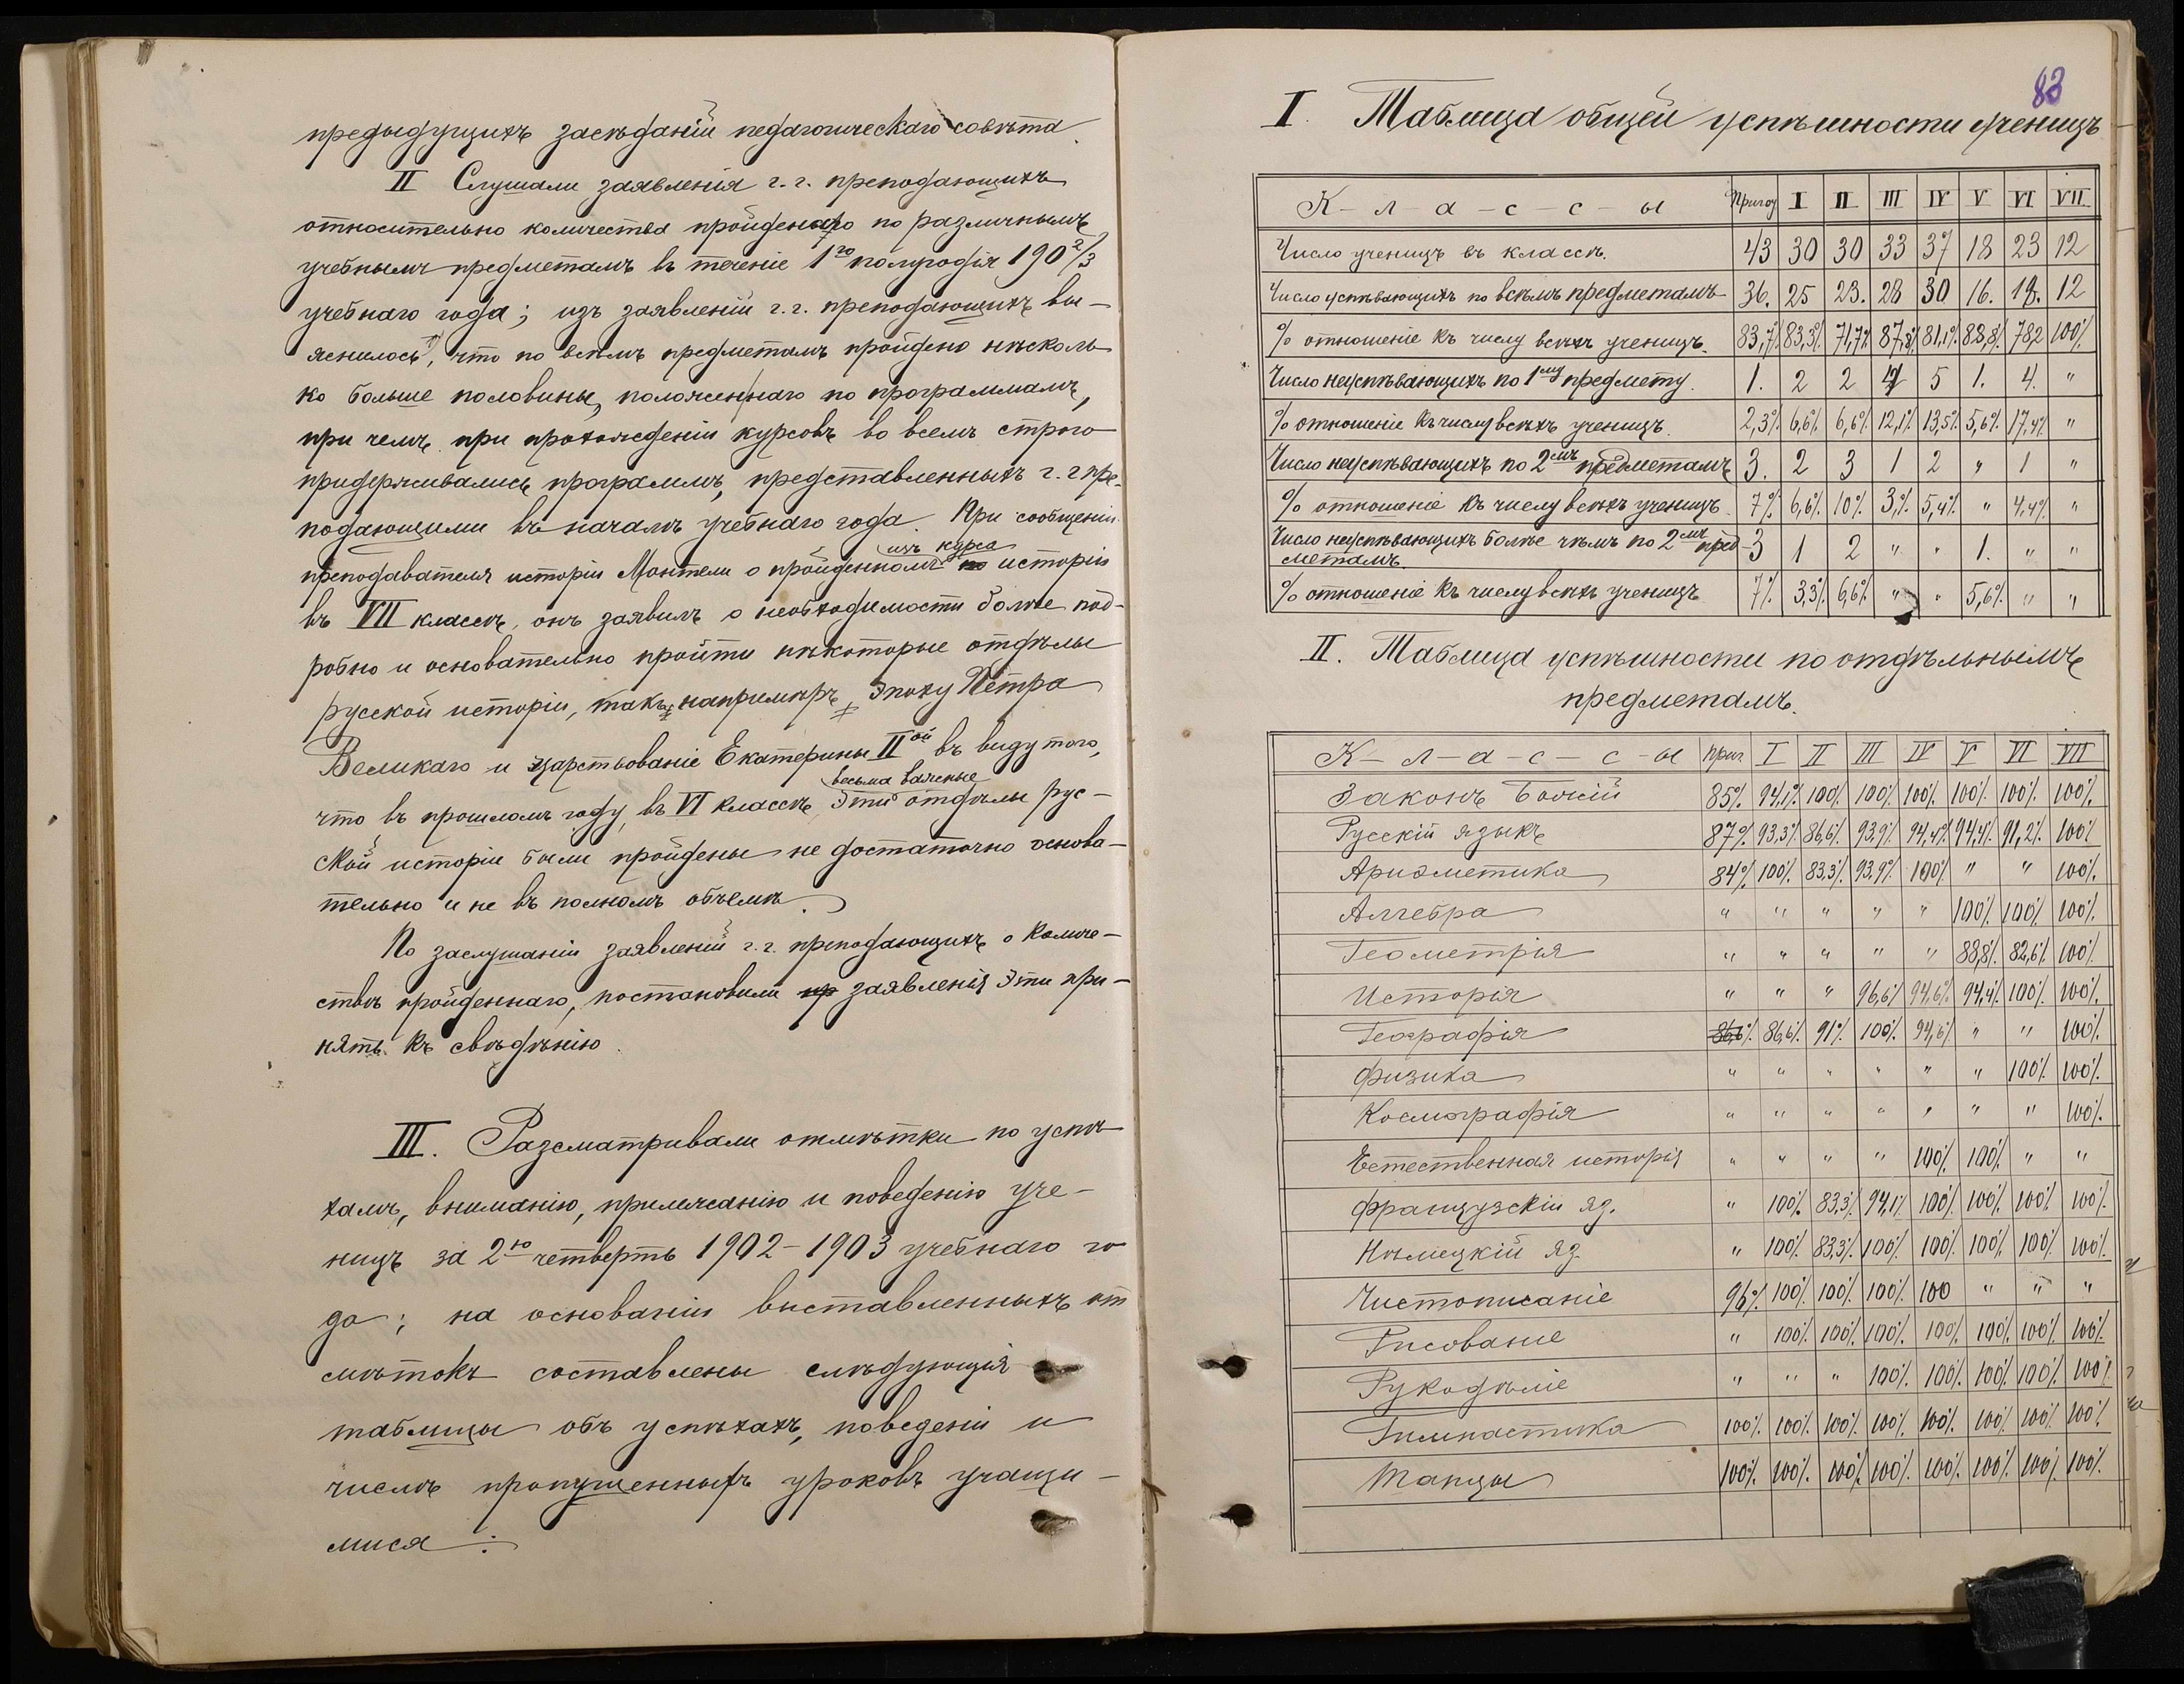 предыдущихъ засѣданій педагогическаго совѣта.
II Слушали заявленія г.г. преподающихъ
относительно количества пройденнаго по различнымъ
учебнымъ предметамъ въ теченіе 1го полугодія 190 2/3
учебнаго года; изъ заявленій г.г. преподающихъ вы-
яснилось, что по всѣмъ предметамъ пройдено нѣсколь
ко больше половины, положеннаго по программамъ,
при чемъ при прохожденіи курсовъ во всемъ строго
придерживались программъ, представленныхъ г.г. пре-
подающими въ началѣ учебнаго года. При сообщеніи
изъ курса
преподавателя исторіи Мантели о пройденномъ по исторіи
въ VII классѣ, онъ заявилъ о необходимости болѣе под-
робно и основательно пройти нѣкоторые отдѣлы
русской исторіи, такъ, напримѣръ, эпоху Петра
Великаго и царствованіе Екатерины IIой въ виду того,
весьма важные
что въ прошломъ году, въ VI классѣ, эти отдѣлы рус-
ской исторіи были пройдены не достаточно основа-
тельно и не въ полномъ объемѣ.
По заслушаніи заявленій г.г. преподающихъ о количе-
ствѣ пройденнаго, постановили пр заявленія эти при-
нять къ свѣдѣнію.
III. Разсматривали отмѣтки по успѣ
хамъ, вниманію, прилежанію и поведенію уче-
ницъ за 2ю четверть 1902-1903 учебнаго го
да; на основаніи выставленныхъ от
мѣтокъ составлены слѣдующія
таблицы объ успѣхахъ, поведеніи и
числѣ пропущенныхъ уроковъ учащи-
мися:
83
I. Таблица общей успѣшности ученицъ
К-л-а-с-с-ы Пригот I II III IV V VI VII
Число ученицъ въ классѣ. 43 30 30 33 37 18 23 12
Число успѣвающихъ по всѣмъ предметамъ 36. 25 23. 28 30 16. 18. 12
% отношеніе къ числу всѣхъ ученицъ. 83,7% 83,3% 71,7% 87,8% 81,1% 88,8% 78,2 100%
Число неуспѣвающихъ по 1му предмету. 1. 2 2 4 5 1. 4. "
% отношеніе къ числу всѣхъ ученицъ. 2,3% 6,6% 6,6% 12,1% 13,5% 5,6% 17,4% "
Число неуспѣвающихъ по 2мъ предметамъ 3. 2 3 1 2 " 1 "
% отношеніе къ числу всѣхъ ученицъ. 7% 6,6% 10% 3% 5,4% " 4,4% "
Число неуспѣвающихъ болѣе чѣмъ по 2мъ пред-
метамъ. 3 1 2 " " 1. " "
% отношеніе къ числу всѣхъ ученицъ 7% 3,3% 6,6% " " 5,6% " "
II. Таблица успѣшности по отдѣльнымъ
предметамъ.
К-л-а-с-с-ы Приг. I II III IV V VI VII
Законъ Божій 85% 94,1% 100% 100% 100% 100% 100% 100%
Русскій языкъ 87% 93,3% 86,6% 93,9% 94,4% 94,4% 91,2% 100%
Ариѳметика 84% 100% 83,3% 93,9% 100% " " 100%
Алгебра " " " " " 100% 100% 100%
Геометрія " " " " " 88,8% 82,6% 100%
Исторія " " " 96,6% 94,6% 94,4% 100% 100%
Географія 86,6% 86,6% 91% 100% 94,6% " " 100%
Физика " " " " " " 100% 100%
Космографія " " " " " " " 100%
Естественная исторія " " " " 100% 100% " "
Французскій яз. " 100% 83,3% 94,1% 100% 100% 100% 100%
Нѣмецкій яз. " 100% 83,3% 100% 100% 100% 100% 100%
Чистописаніе 96% 100% 100% 100% 100 " " "
Рисованіе " 100% 100% 100% 100% 100% 100% 100%
Рукодѣліе " " " 100% 100% 100% 100% 100%
Гимнастика 100% 100% 100% 100% 100% 100% 100% 100%
Танцы 100% 100% 100% 100% 100% 100% 100% 100%